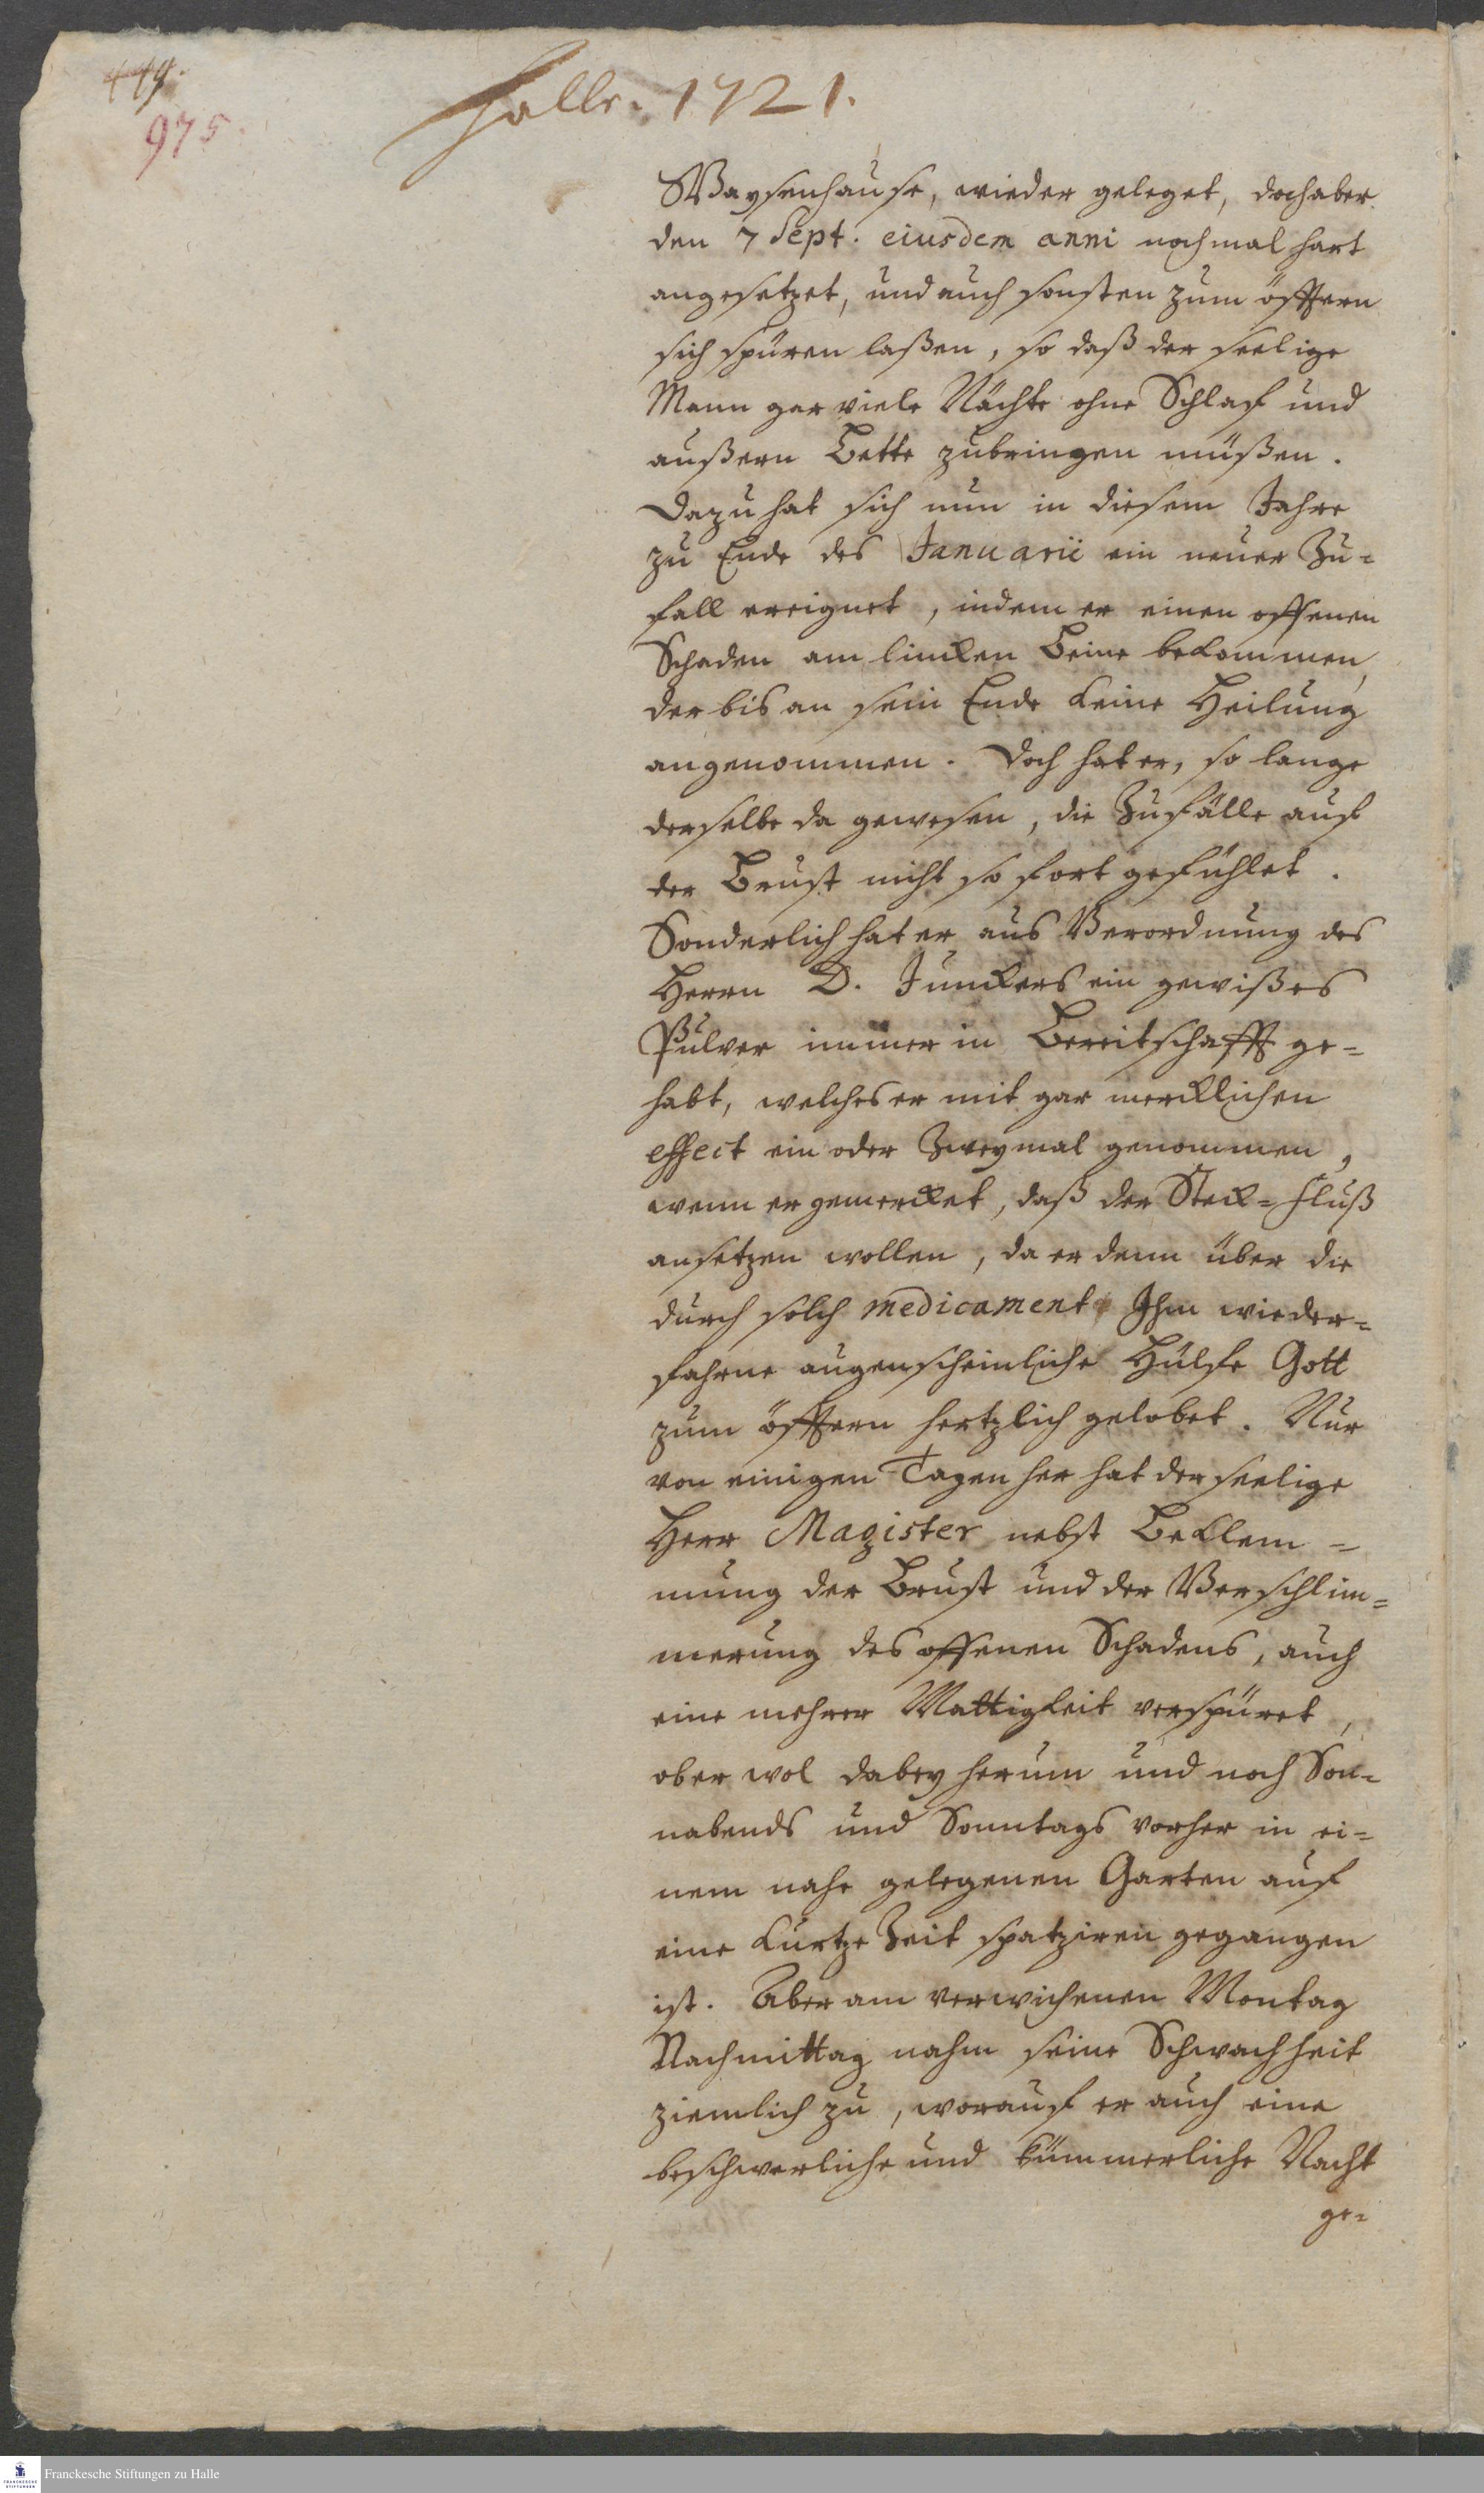 119.
975.
Halle. 1721.
Waysenhause, wieder geleget, doch aber
den 7 Sept. eiusdem anni nochmal hart
angesetzet, und auch sonsten zum öfftern
sich spüren laßen, so daß der seelige
Mann gar viele Nächte ohne Schlaf und
außern Bette zubringen müßen.
Dazu hat sich nun in diesem Jahre
zu Ende des Januarii ein neuer Zu-
fall ereignet, indem er einen offenen
Schaden am lincken Beine bekommen,
der bis an sein Ende keine Heilung
angenommen. Doch hat er, so lange
derselbe da gewesen, die Zufälle auf
der Brust nicht so fort gefühlet.
Sonderlich hat er aus Verordnung des
Herrn D. Junckers ein gewißes
Pulver immer in Bereitschafft ge-
habt, welches er mit gar mercklichen
effect ein oder zweymal genommen,
wenn er gemercket, daß der Steck-Fluß
ansetzen wollen, da er denn über die
durch solch medicament Ihm wieder-
fahrne augenscheinliche Hülfe Gott
zum öfftern hertzlich gelobet. Nur
von einigen Tagen her hat der seelige
Herr Magister nebst Beklem-
mung der Brust und der Verschlim-
merung des offenen Schadens, auch
eine mehrer Mattigkeit verspüret,
ob er wol dabey herum und noch Son-
nabends und Sonntags vorher in ei-
nem nahe gelegenen Garten auf
eine kurtze Zeit spatziren gegangen
ist. Aber am verwichenen Montag
Nachmittag nahm seine Schwachheit
ziemlich zu, worauf er auch eine
beschwerliche und kümmerliche Nacht
ge-
FRANCKESCHE
STIFTUNGEN
Franckesche Stiftungen zu Halle